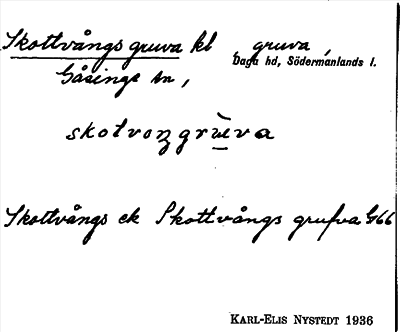 Skottvångs gruva kl , gruva ,
Daga hd, Södermanlands l.
Gåsinge sn ,
skotvoŋgrùva
Skottvångs ek Skottvångs grufva G66
KARL-ELIS NYSTEDT 1936